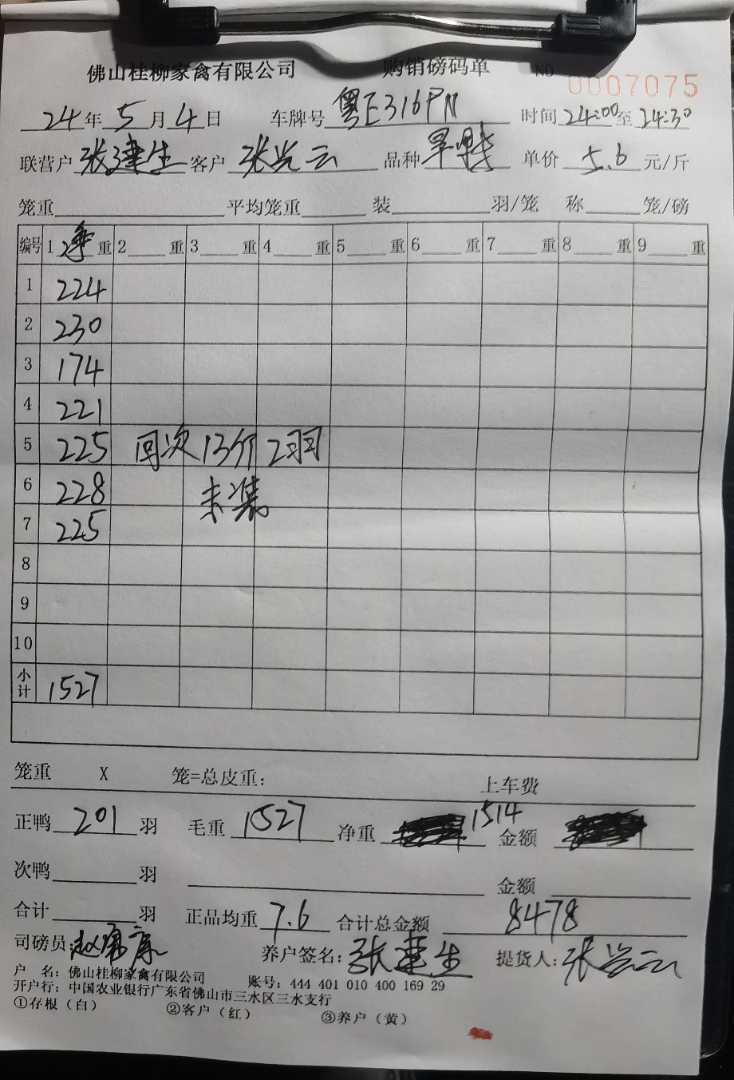 佛山桂柳家禽有限公司 购销磅码单 NO 0007075
24年5月4日 车牌号 粤E316PN 时间 24:00至24:30
联营户 张建生 客户 张兴云 品种 单价 5.6 元/斤
笼重 平均笼重 装 羽/笼 称 笼/磅
编号 1 净 重 2 重 3 重 4 重 5 重 6 重 7 重 8 重 9 重
1 224
2 230
3 174
4 221
5 225 回次13斤2羽
6 228 未装
7 225
8
9
10
小计 1527
笼重 X 笼=总皮重: 上车费
正鸭 201 羽 毛重 1527 净重 1514 金额
次鸭 羽 金额
合计 羽 正品均重 7.6 合计总金额 8478
司磅员: 养户签名: 张建生 提货人: 张兴云
户 名: 佛山桂柳家禽有限公司 账号: 444 401 010 400 169 29
开户行: 中国农业银行广东省佛山市三水区三水支行
①存根（白） ②客户（红） ③养户（黄）